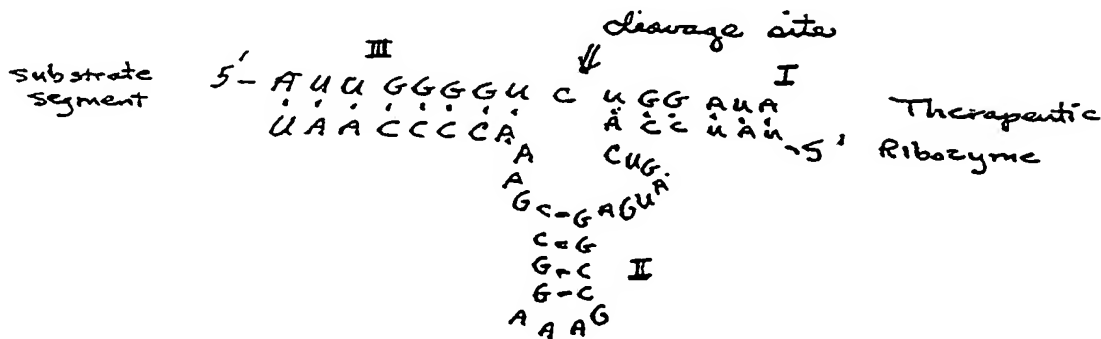 cleavage site
III
I
substrate segment 5'- A U U G G G G U C U G G A U A
U A A C C C C A A C C U A U -5'
Therapeutic Ribozyme
A C U G
A A
G C - G A G U
C = G
G - C II
G - C
A A A A G